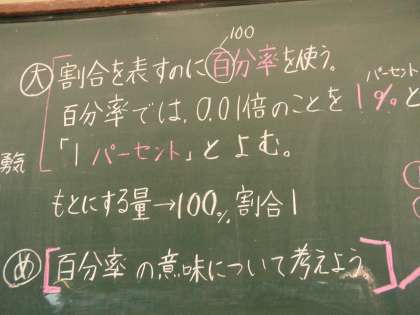 100
大 割合を表すのに百分率を使う。
パーセント
百分率では、0.01倍のことを1%と
勇気
「1パーセント」とよむ。
もとにする量→100% 割合1
め 百分率の意味について考えよう。